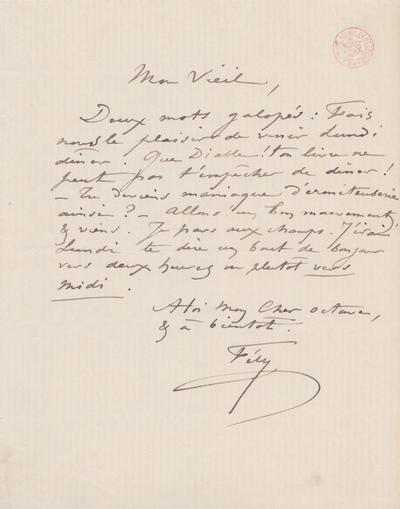 Mon Vieil,
Deux mots galopés : Fais
nous le plaisir de venir Lundi
dîner. Que Diable ! ton livre ne
peut pas t'empêcher de dîner !
– Tu deviens maniaque d'ermiteuserie
ainsi ? – Allons ! un bon mouvement,
& viens. Je pars aux champs. J'irai
Lundi te dire un bout de bonjour
vers deux heures ou plutôt vers
midi.
A toi mon Cher octave,
& à bientôt.
Fély